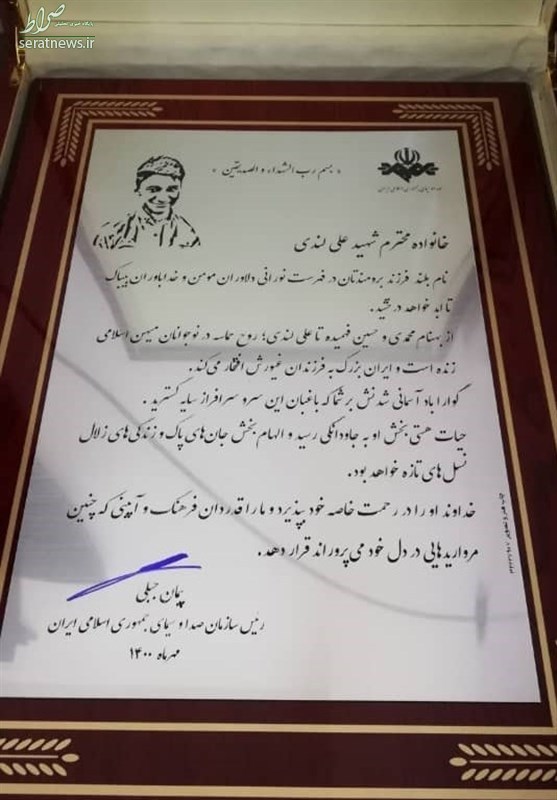 صراط
پایگاه خبری تحلیلی
seratnews.ir
« بسم رب الشهداء و الصدیقین »
صدا و سیمای جمهوری اسلامی ایران
خانواده محترم شهید علی لندی
نام بلند فرزند برومندتان در فهرست نورانی دلاوران مومن و خداباوران بیباک
تا ابد خواهد درخشید.
از بهنام محمدی و حسین فهمیده تا علی لندی؛ روح حماسه در نوجوانان میهن اسلامی
زنده است و ایران بزرگ به فرزندان غیورش افتخار می‌کند.
گوارا باد آسمانی شدنش بر شما که باغبان این سرو سرافراز سایه گسترید .
حیات هستی بخش او به جاودانگی رسید و الهام بخش جان‌های پاک و زندگی‌های زلال
نسل‌های تازه خواهد بود.
خداوند او را در رحمت خاصه خود بپذیرد و ما را قدردان فرهنگ و آیینی که چنین
مرواریدهایی در دل خود می‌پروراند قرار دهد.
پیمان جبلی
رئیس سازمان صدا و سیمای جمهوری اسلامی ایران
مهرماه ۱۴۰۰